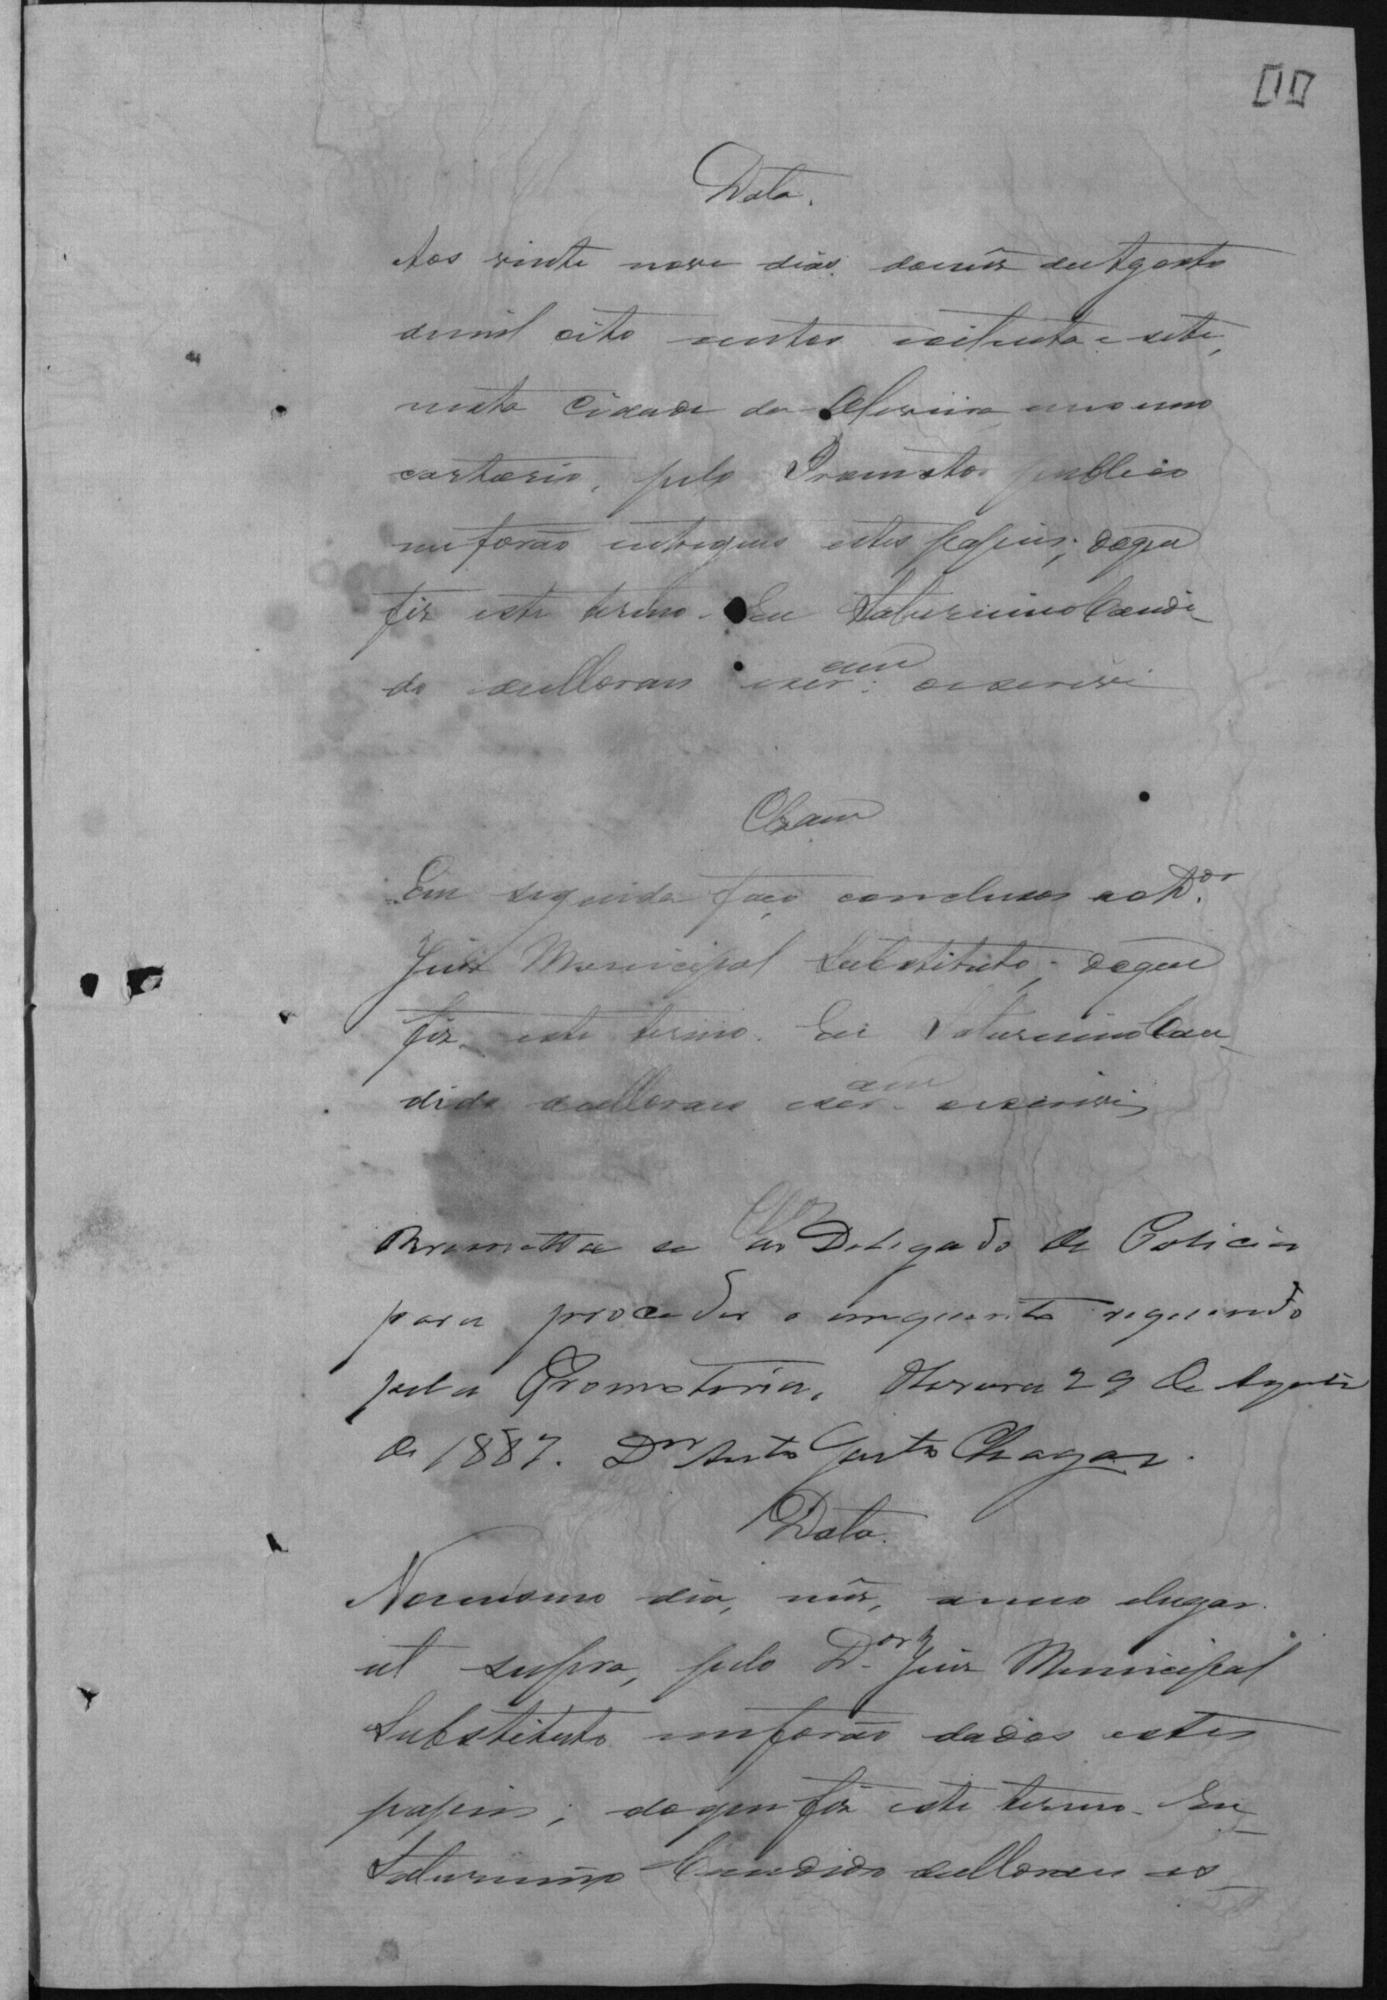 Data.
Aos vinte nove dias do mez de Agosto
de mil oito centos oitenta e sete,
nesta Cidade de Oliveira em meu
cartorio, pelo Promotor publico
me forão entregues estes papeis; do que
fiz este termo. Eu Saturnino Candi-
do de Moraes escr.am o escrivi
Clzam
Em seguida faço conclusos ao D.or
Juiz Municipal Substituto; do que
fiz este termo. Eu Saturnino Can-
dido de Moraes escr.am o escrivi
Clzos
Remetta se ao Delegado de Policia
para proceder o inquerito requerido
pela Promotoria. 29 de Agosto
de 1887. Dr Justo Chagas.
Data.
No mesmo dia, mez, anno e lugar
ut supra, pelo D.or Juiz Municipal
Substituto me forão dados estes
papeis; do que fiz este termo. Eu
Saturnino Candido de Moraes es-